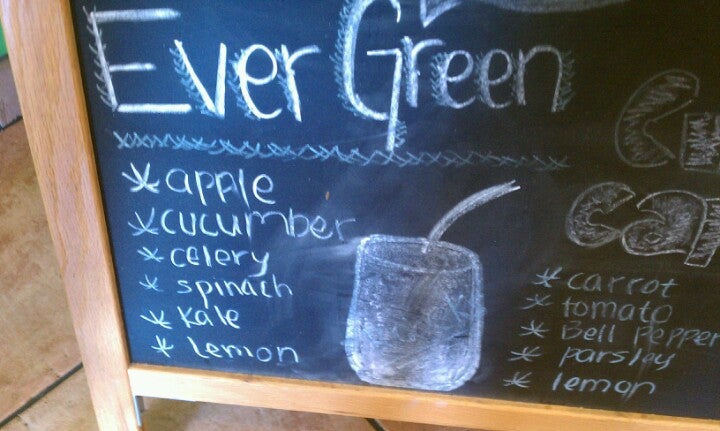 Ever Green
apple
cucumber
celery
spinach
kale
lemon
carrot
tomato
Bell Pepper
parsley
lemon